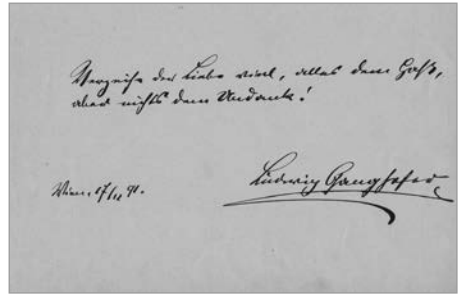 Verzeihe der Liebe viel, alles dem Haß,
aber nichts dem Undank!
Wien. 17/12 91.
Ludwig Ganghofer